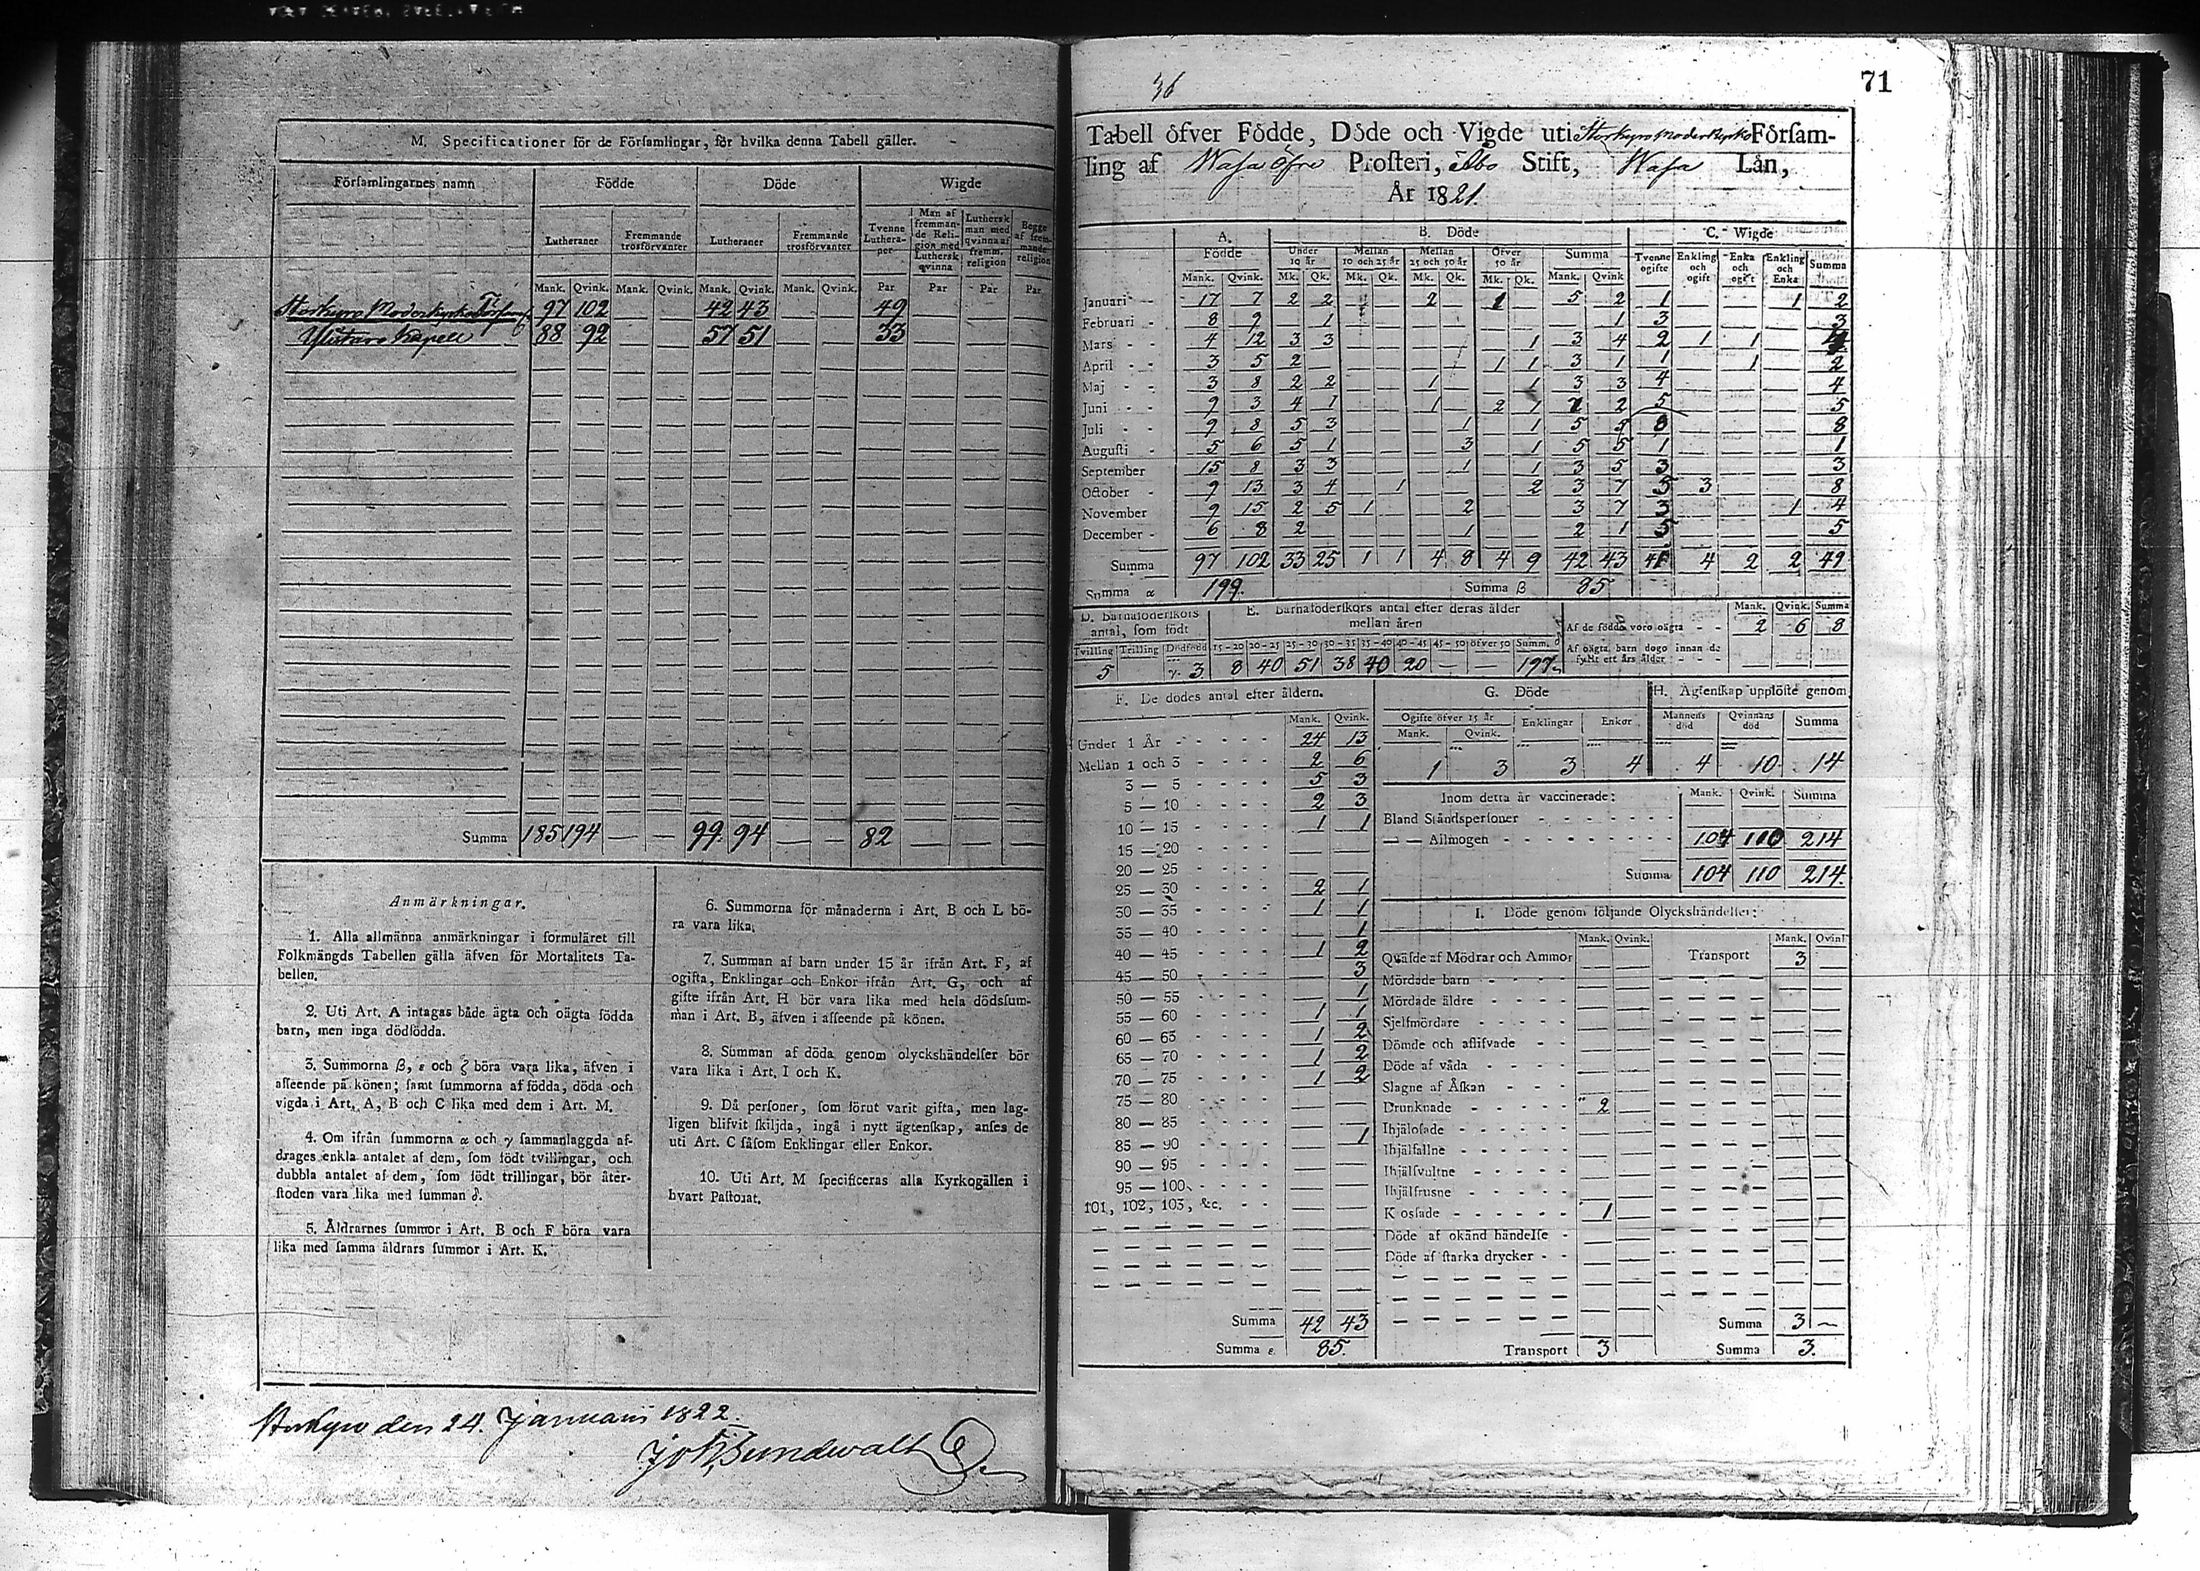 M. Specificationer för de Församlingar, för hvilka denna Tabell gäller.
Församlingarnes namn Födde Döde Wigde
Lutheraner Fremmande trosförvanter Lutheraner Fremmande trosförvanter Tvenne Lutheraner Man af fremmande Religion med Luthersk qvinna Luthersk man med qvinna af fremm. religion Begge af fremmande religion
Mank. Qvink. Mank. Qvink. Mank. Qvink. Mank. Qvink. Par Par Par Par
Storkyro Moderkyrko Förs. 97 102 — — 42 43 — — 49 — — —
Ylistaro Kapell 88 92 — — 57 51 — — 33 — — —
Summa 185 194 — — 99. 94 — — 82 — — —
Anmärkningar.
1. Alla allmänna anmärkningar i formuläret till
Folkmängds Tabellen gälla äfven för Mortalitets Ta-
bellen.
2. Uti Art. A intagas både ägta och oägta födda
barn, men inga dödfödda.
3. Summorna ß, ε och ζ böra vara lika, äfven i
afseende på könen; samt summorna af födda, döda och
vigda i Art. A, B och C lika med dem i Art. M.
4. Om ifrån summorna α och γ sammanlaggda af-
drages enkla antalet af dem, som födt tvillingar, och
dubbla antalet af dem, som födt trillingar, bör åter-
stoden vara lika med summan δ.
5. Åldrarnes summor i Art. B och F böra vara
lika med samma åldrars summor i Art. K.
6. Summorna för månaderna i Art. B och L bö-
ra vara lika.
7. Summan af barn under 15 år ifrån Art. F, af
ogifta, Enklingar och Enkor ifrån Art. G, och af
gifte ifrån Art. H bör vara lika med hela dödssum-
man i Art. B, äfven i afseende på könen.
8. Summan af döda genom olyckshändelser bör
vara lika i Art. I och K.
9. Då personer, som förut varit gifta, men lag-
ligen blifvit skiljda, ingå i nytt ägtenskap, anses de
uti Art. C såsom Enklingar eller Enkor.
10. Uti Art. M specificeras alla Kyrkogällen i
hvart Pastorat.
Storkyro den 24. Januarii 1822.
Joh. Sundwall
36
71
Tabell öfver Födde, Döde och Vigde uti Storkyro Moderkyrko Församling af Wasa öfre Prosteri, Åbo Stift, Wasa Län,
År 1821.
A. Födde B. Döde C. Wigde
Under 10 år Mellan 10 och 25 år Mellan 25 och 50 år Öfver 50 år Summa Tvenne ogifte Enkling och ogift Enka och ogift Enkling och Enka Summa
Mank. Qvink. Mk. Qk. Mk. Qk. Mk. Qk. Mk. Qk. Mank. Qvink
Januari 17 7 2 2 — — 2 — 1 — 5 2 1 — — 1 2
Februari 8 9 — 1 — — — — — — — 1 3 — — — 3
Mars 4 12 3 3 — — — — — 1 3 4 2 1 1 —
April 3 5 2 — — — — — 1 1 3 1 1 — 1 — 2
Maj 3 8 2 2 — — 1 — — 1 3 3 4 — — — 4
Juni 9 3 4 1 — — 1 — 2 1 2 5 — — — 5
Juli 9 8 5 3 — — — 1 — 1 5 5 8 — — — 8
Augusti 5 6 5 1 — — — 3 — 1 5 5 1 — — — 1
September 15 8 3 3 — — — 1 — 1 3 5 3 — — — 3
October 9 13 3 4 — 1 — — — 2 3 7 5 3 — — 8
November 9 15 2 5 1 — — 2 — — 3 7 3 — — 1 4
December 6 8 2 — — — — 1 — — 2 1 5 — — — 5
Summa 97 102 33 25 1 1 4 8 4 9 42 43 41 4 2 2 49
Summa α 199. Summa ß 85
D. Barnaföderskors antal, som födt
Tvilling Trilling Dödfödd
5 γ. 3.
E. Barnaföderskors antal efter deras ålder mellan åren
15-20 20-25 25-30 30-35 35-40 40-45 45-50 öfver 50 Summ. δ
8 40 51 38 40 20 — — 197.
Mank. Qvink. Summa
Af de födda voro oägta 2 6 8
Af oägta barn dogo innan de
fyllt ett års ålder — — —
F. De dödes antal efter åldern.
Mank. Qvink.
Under 1 År 24 13
Mellan 1 och 3 2 6
3 — 5 5 3
5 — 10 2 3
10 — 15 1 1
15 — 20 — —
20 — 25 — —
25 — 30 2 1
30 — 35 1 1
35 — 40 — 1
40 — 45 1 2
45 — 50 — 3
50 — 55 — 1
55 — 60 1 1
60 — 65 1 2
65 — 70 1 2
70 — 75 1 2
75 — 80 — —
80 — 85 — —
85 — 90 — 1
90 — 95 — —
95 — 100 — —
101, 102, 103, &c.
Summa 42 43
Summa ε. 85.
G. Döde
Ogifte öfver 15 år Enklingar Enkor
Mank. Qvink.
1 3 3 4
H. Ägtenskap upplöste genom
Mannens död Qvinnans död Summa
4 10 14
Inom detta år vaccinerade: Mank. Qvink. Summa
Bland Ståndspersoner — — —
— — Allmogen 104 110 214
Summa 104 110 214.
I. Döde genom följande Olyckshändelser:
Mank. Qvink. Mank. Qvink
Qväfde af Mödrar och Ammor — — Transport 3 —
Mördade barn
Mördade äldre
Sjelfmördare
Dömde och aflifvade
Döde af våda
Slagne af Åskan
Drunknade 2 —
Ihjälosade
Ihjälfallne
Ihjälsvultne
Ihjälfrusne
Krossade 1 —
Döde af okänd händelse
Döde af starka drycker
Summa 3 —
Transport 3 Summa 3.